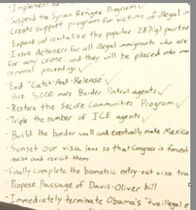 - Suspend the Syrian Refugee Program ✓
- Create support program for victims of illegal im
- Expand and revitalize the popular 287(g) partne
- Issue detainers for all illegal immigrants who are
for any crime, and they will be placed into imm
removal proceedings ✓
- End "Catch-And-Release" ✓
- Hire 5,000 more Border Patrol agents ✓
- Restore the Secure Communities Program ✓
- Triple the number of ICE agents ✓
- Build the border wall and eventually make Mexico
- Sunset our visa laws so that Congress is forced
revise and revisit them
- Finally complete the biometric entry-exit visa tra
- Propose Passage of Davis-Oliver bill
- Immediately terminate Obama's "two illegal e